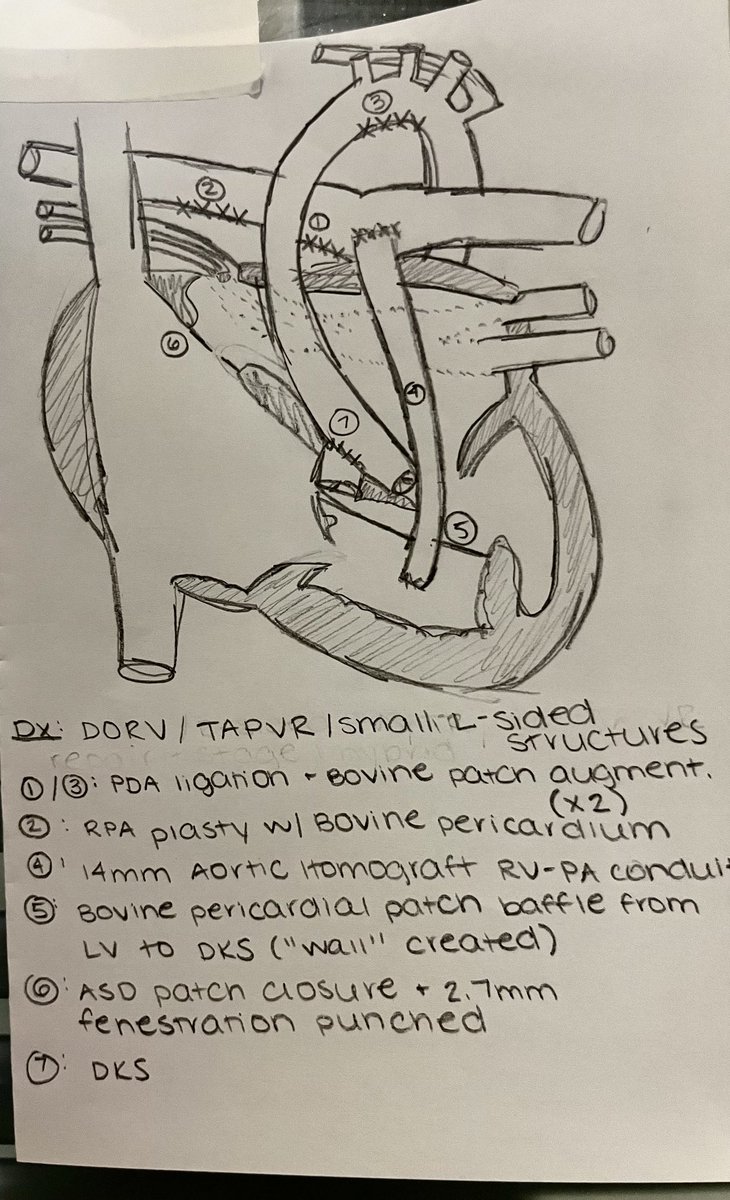 ③
②
①
⑥
④
⑦
⑤
DX: DORV / TAPVR / small L-sided
structures
①/③: PDA ligation + Bovine patch augment.
(x2)
②: RPA plasty w/ Bovine pericardium
④: 14mm Aortic Homograft RV-PA conduit
⑤: Bovine pericardial patch baffle from
LV to DKS ("wall" created)
⑥: ASD patch closure + 2.7mm
fenestration punched
⑦: DKS